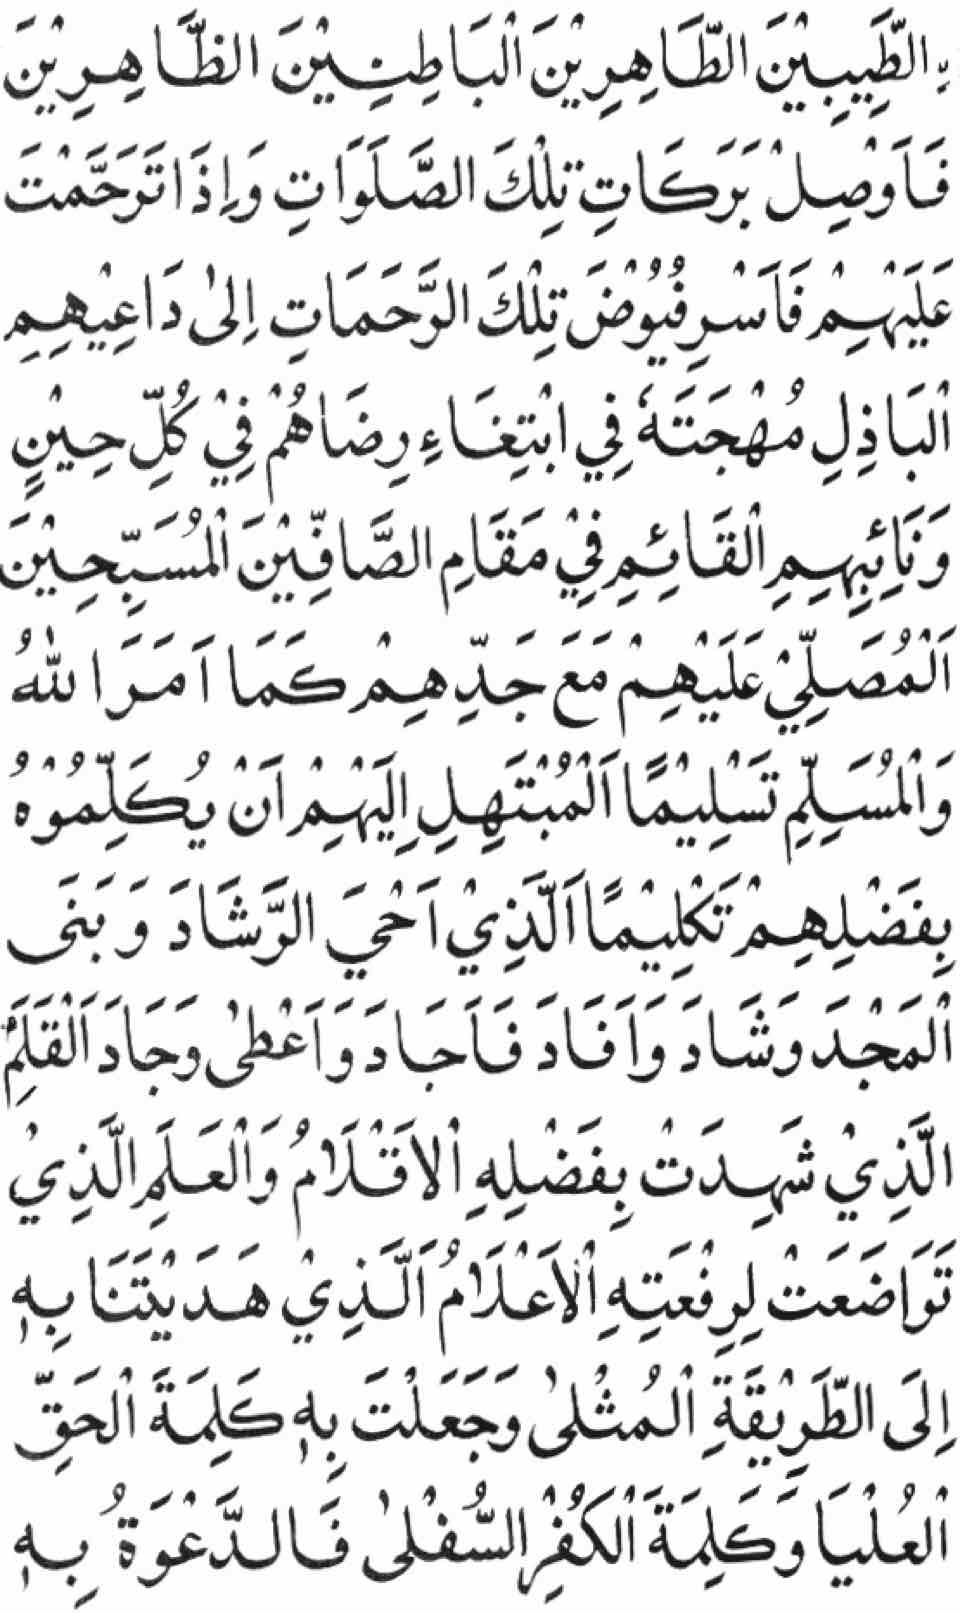 الطَّيِّبِيْنَ الطَّاهِرِيْنَ الْبَاطِنِيْنَ الظَّاهِرِيْنَ
فَاَوْصِلْ بَرَكَاتِ تِلْكَ الصَّلَوَاتِ وَاِذَا تَرَحَّمْتَ
عَلَيْهِمْ فَاَسْرِ فُيُوْضَ تِلْكَ الرَّحَمَاتِ اِلىٰ دَاعِيْهِمِ
الْبَاذِلِ مُهْجَتَهٗ فِي ابْتِغَاءِ رِضَاهُمْ فِيْ كُلِّ حِيْنٍ
وَنَائِبِهِمِ الْقَائِمِ فِيْ مَقَامِ الصَّافِّيْنَ الْمُسَبِّحِيْنَ
اَلْمُصَلِّيْ عَلَيْهِمْ مَعَ جَدِّهِمْ كَمَا اَمَرَ اللهُ
وَالْمُسَلِّمِ تَسْلِيْمًا اَلْمُبْتَهِلِ اِلَيْهِمْ اَنْ يُكَلِّمُوْهُ
بِفَضْلِهِمْ تَكْلِيْمًا اَلَّذِيْ اَحْيَ الرَّشَادَ وَبَنَى
الْمَجْدَ وَشَادَ وَاَفَادَ فَاَجَادَ وَاَعْطىٰ وَجَادَ اَلْقَلَمِ
الَّذِيْ شَهِدَتْ بِفَضْلِهِ الْاَقْلَامُ وَالْعَلَمِ الَّذِيْ
تَوَاضَعَتْ لِرِفْعَتِهِ الْاَعْلَامُ اَلَّذِيْ هَدَيْتَنَا بِهٖ
اِلَى الطَّرِيْقَةِ الْمُثْلىٰ وَجَعَلْتَ بِهٖ كَلِمَةَ الْحَقِّ
الْعُلْيَا وَكَلِمَةَ الْكُفْرِ السُّفْلىٰ فَالدَّعْوَةُ بِهٖ